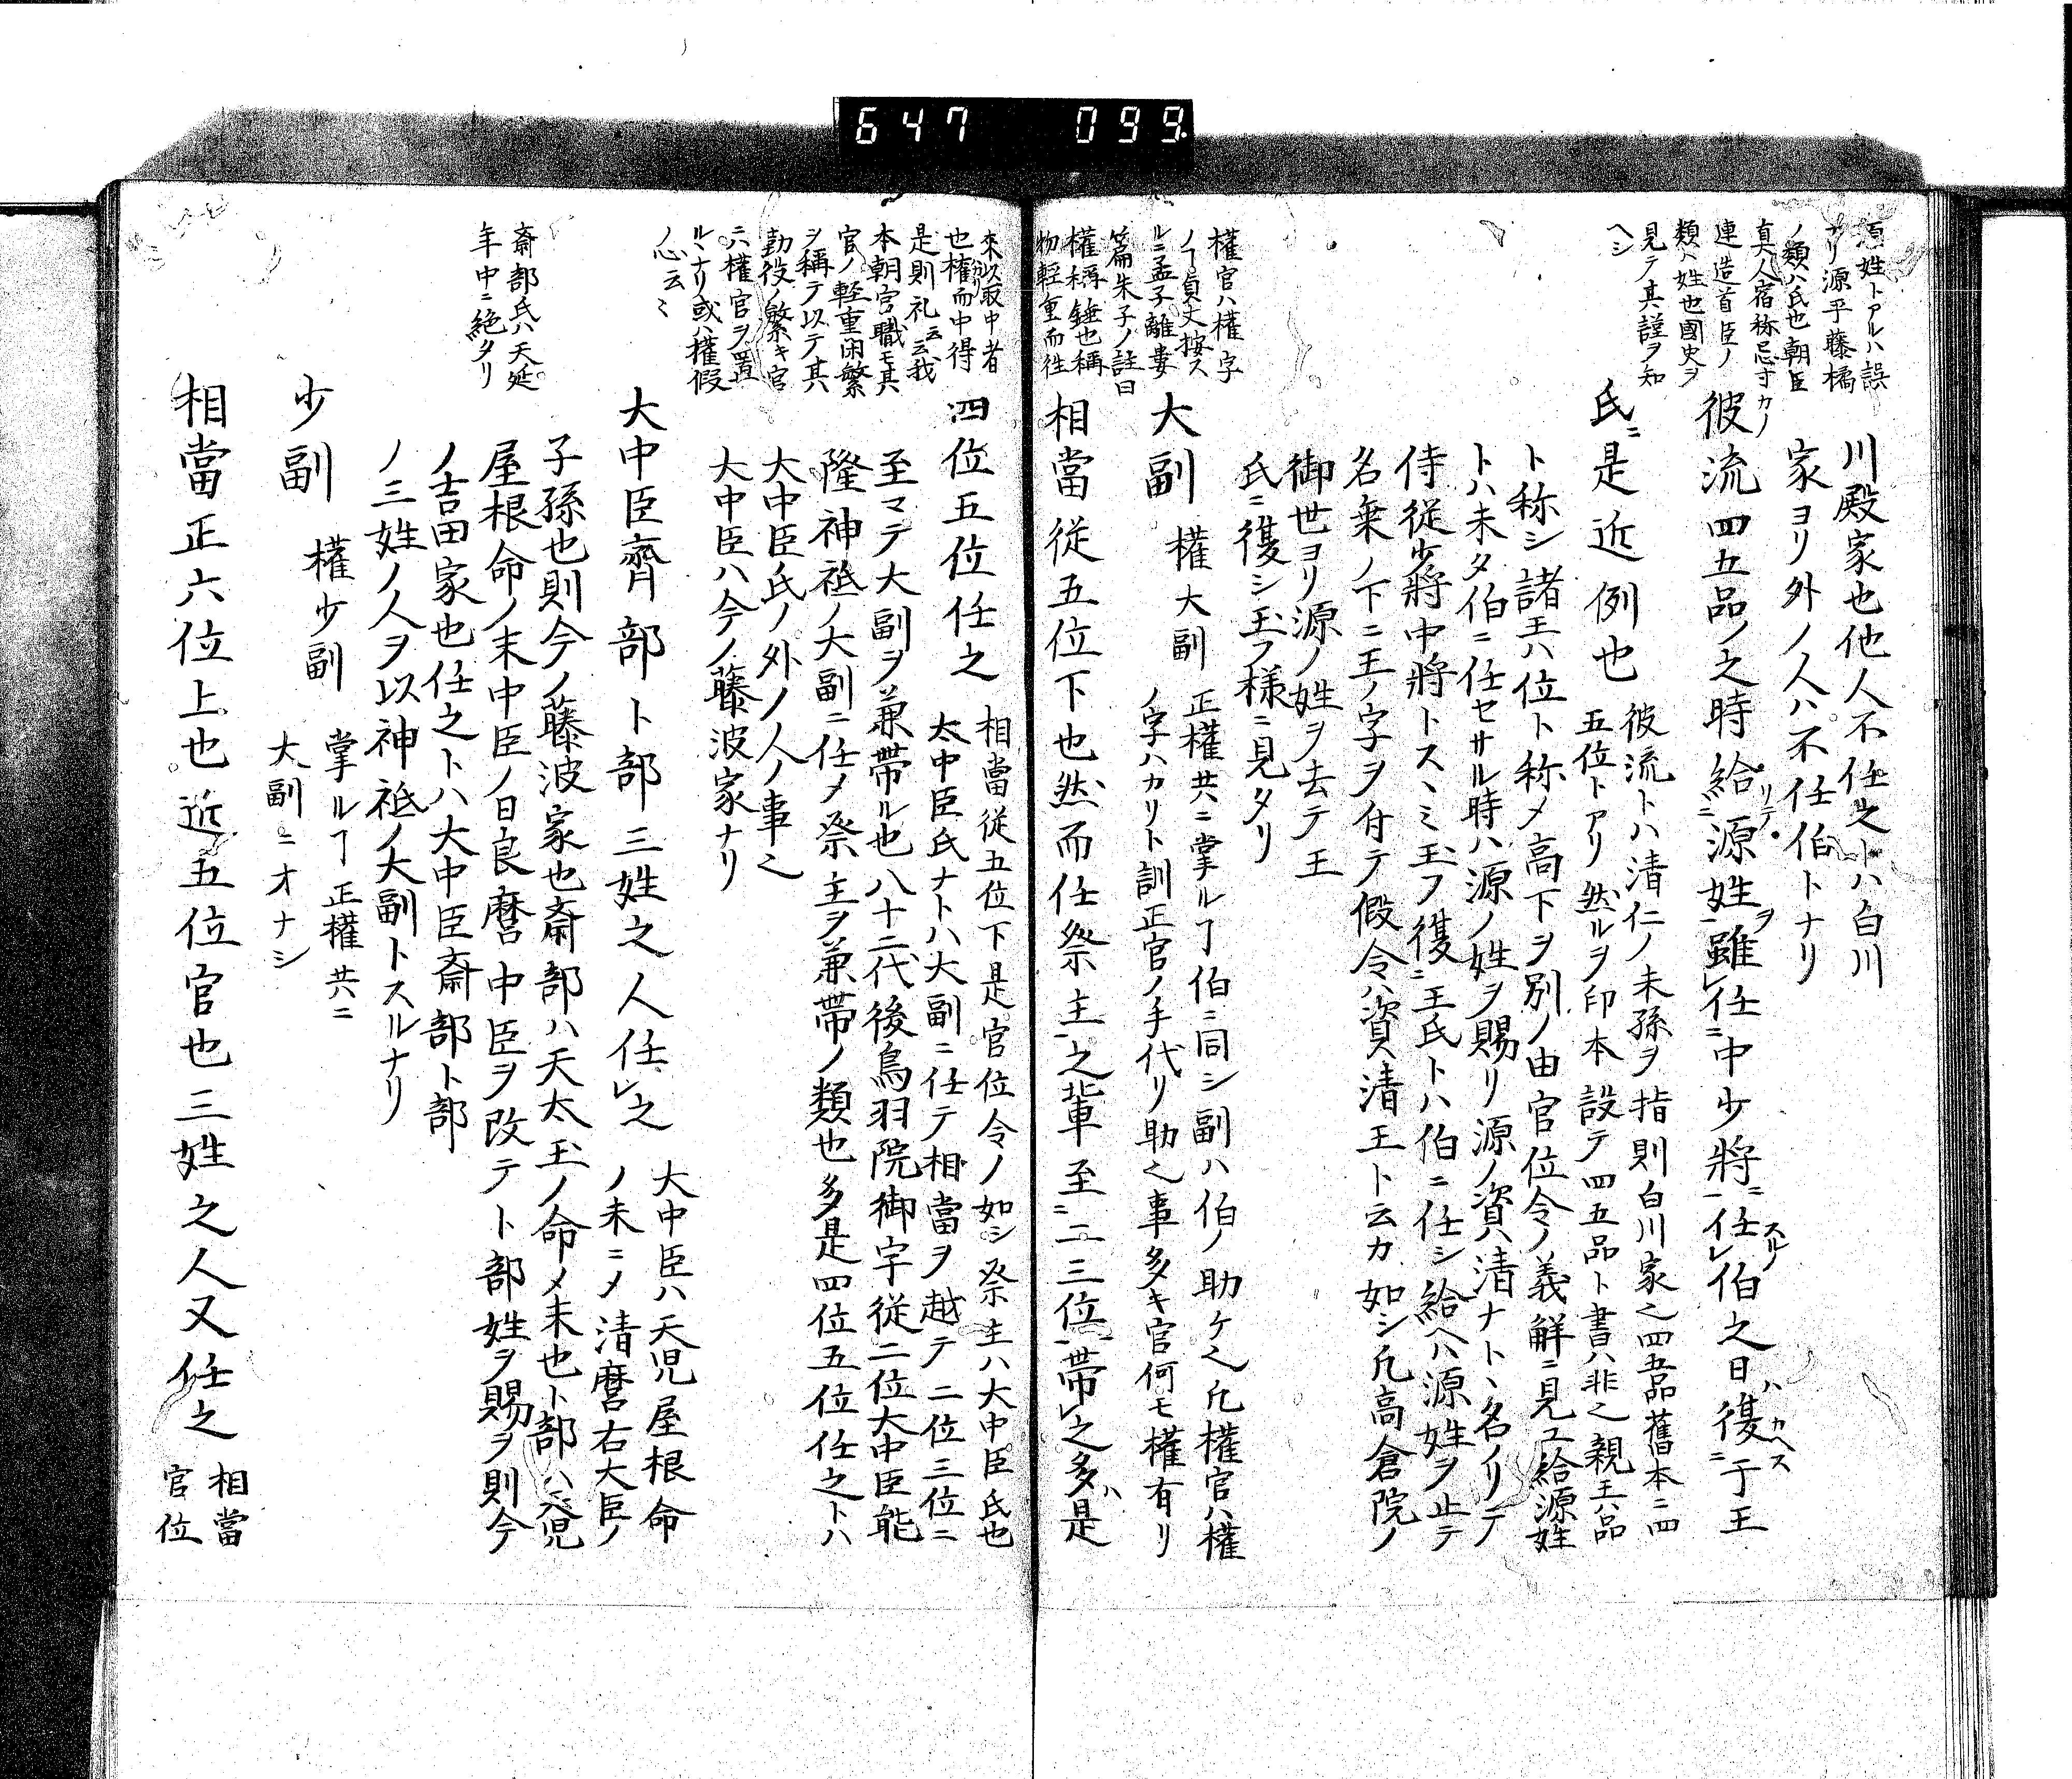 647 099
源姓トアルハ誤
ナリ源平藤橘
ノ類ハ氏也朝臣
真人宿祢忌寸カノ
連造首臣ノ
類ハ姓也國史ヲ
見テ其謹ヲ知
ヘシ
川殿家也他人不任之トハ白川
家ヨリ外ノ人ハ不任伯トナリ
彼流四五品ノ之時給リテ源姓ヲ雖任中少將ニ任スルノ伯之日ハ復カヘス于王
氏ニ是近例也
彼流トハ清仁ノ末孫ヲ指則白川家之四五品舊本ニ四
五位トアリ然ルヲ印本設テ四五品ト書ハ非之親王ハ品
ト称シ諸王ハ位ト称メ高下ヲ別ノ由官位令ノ義解ニ見エ給源姓
トハ未タ伯ニ任セサル時ハ源ノ姓ヲ賜リ源ノ資清ナト丶名ノリテ
侍従少將中將トス丶ミ玉フ復ニ王氏トハ伯ニ任シ給ヘハ源姓ヲ止テ
名乗ノ下ニ王ノ字ヲ付テ假令ハ資清王ト云カ如シ凡高倉院ノ
御世ヨリ源ノ姓ヲ去テ王
氏ニ復シ玉フ様ニ見タリ
權官ハ權字
ノヿ貞丈按ス
ルニ孟子離婁
篇朱子ノ註曰
權稱錘也稱
物輕重而徃
大副 權大副
正權共ニ掌ルヿ伯ニ同シ副ハ伯ノ助ケ之凡權官ハ權
ノ字ハカリト訓正官ノ手代リ助之事多キ官何モ權有リ
相當従五位下也然而任祭主之輩至二三位帯之多ハ是
來以取中者
也權而中得
是則礼云云我
本朝官職モ其
官ノ輕重閑繁
ヲ稱テ以テ其
勤役ノ繁キ官
ニハ權官ヲ置
ル丶ナリ或ハ權假
ノ心云々
四位五位任之
相當従五位下是官位令ノ如シ祭主ハ大中臣氏也
太中臣氏ナトハ大副ニ任テ相當ヲ越テ二位三位ニ
至マテ大副ヲ兼帶ル也八十二代後鳥羽院御宇従二位大中臣能
隆神祗ノ大副ニ任メ祭主ヲ兼帶ノ類也多是四位五位任之トハ
大中臣氏ノ外ノ人ノ事之
大中臣ハ今ノ藤波家ナリ
大中臣齊部卜部三姓之人任レ之
大中臣ハ天児屋根命
ノ末ニメ清麿右大臣ノ
斎部氏ハ天延
年中ニ絶タリ
子孫也則今ノ藤波家也斎部ハ天太玉ノ命メ末也卜部ハ児
屋根命ノ末中臣ノ日良麿中臣ヲ改テ卜部姓ヲ賜ヲ則今
ノ吉田家也任之トハ大中臣斎部卜部
ノ三姓ノ人ヲ以神祗ノ大副トスルナリ
少副 權少副
掌ルヿ正權共ニ
大副ニオナシ
相當正六位上也近五位官也三姓之人又任之
相當
官位